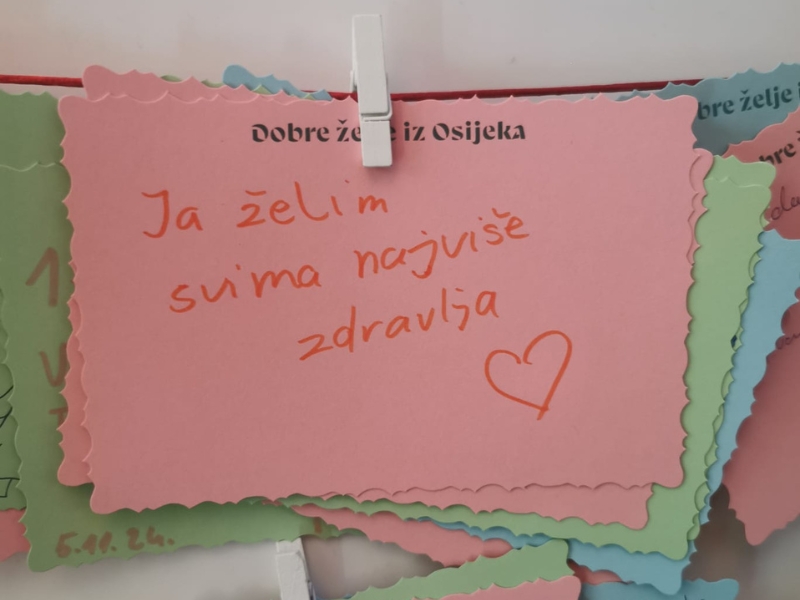 Dobre želje iz Osijeka
Ja želim
svima najviše
zdravlja
bre želje i
bre ž
5.11.24.